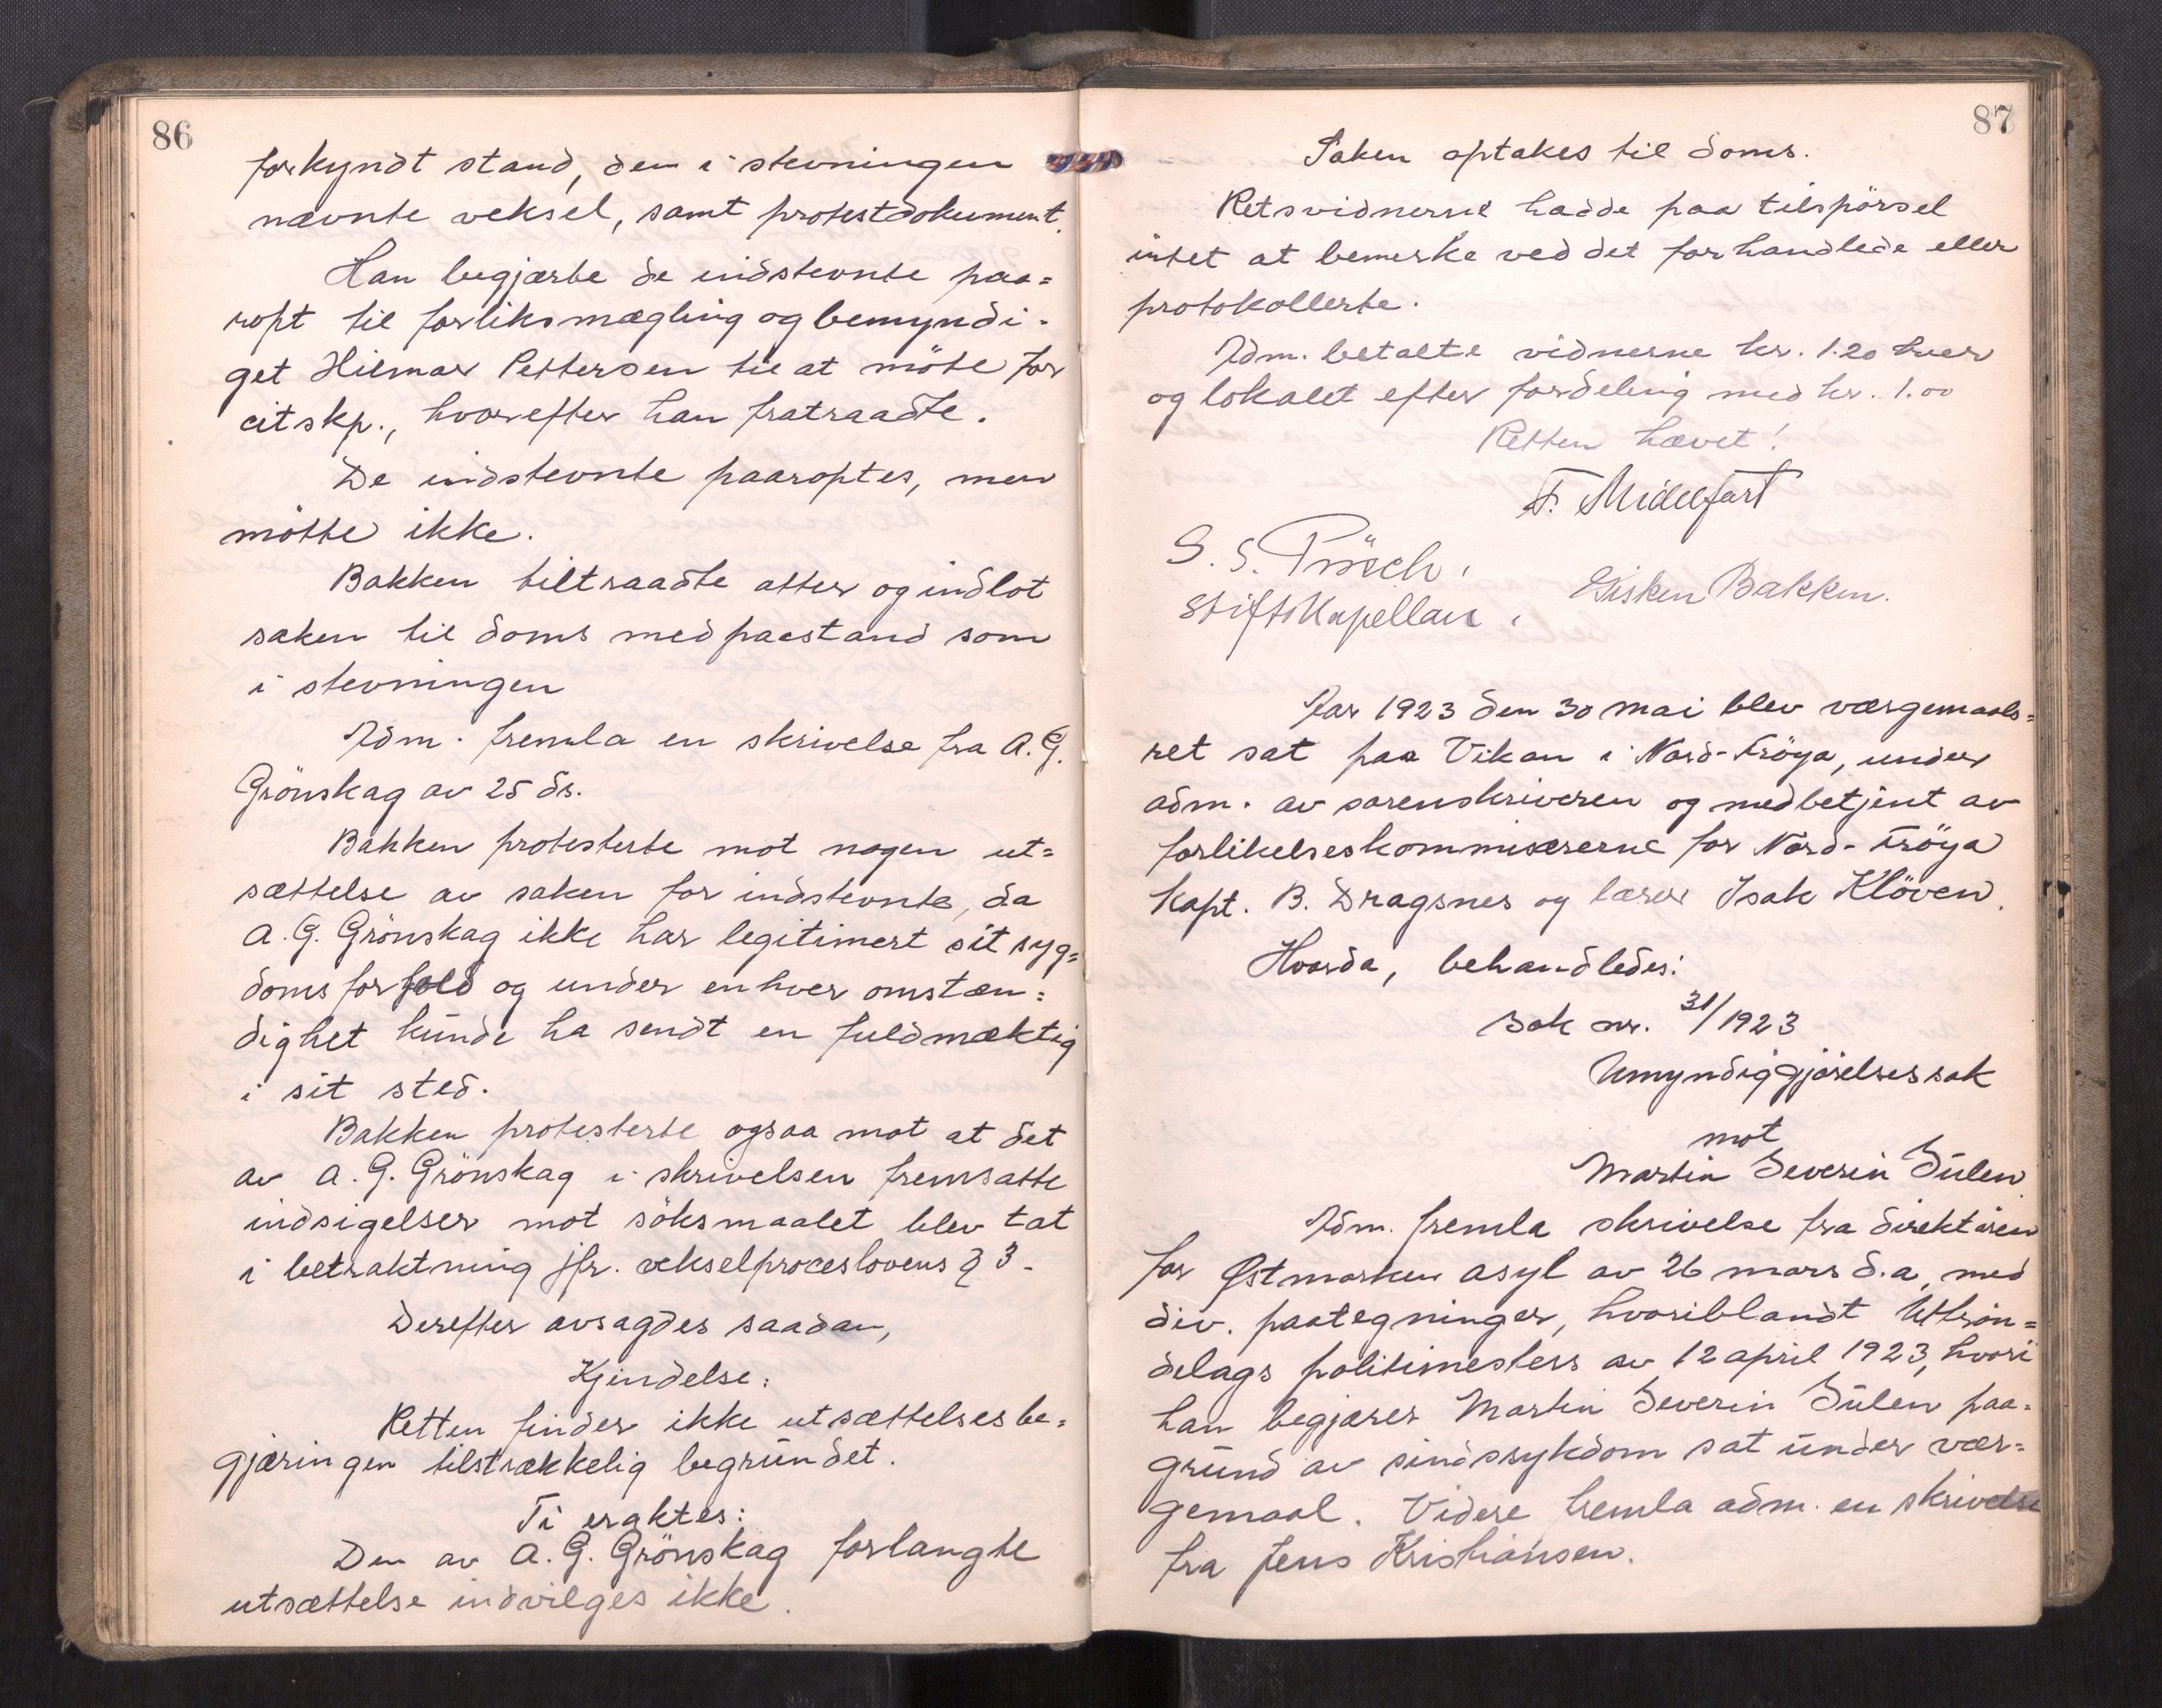 86
forkyndt stand, den i stevningen
nævnte veksel, samt protestdokument.
Han begjærte de indstevnte paa=
ropt til forliksmægling og bemyndi-
get Hilmar Pettersen til at möte for
citskp., hvorefter han fratraadte.
De indstevnte paaroptes, men
mötte ikke.
Bakken tiltraadte atter og indlot
saken til doms med paastand som
i stevningen
Adm. fremla en skrivelse fra A. G.
Grönskag av 25 ds.
Bakken protesterte mot nogen ut=
sættelse av saken for indstevnte, da
A. G. Grönskag ikke har legitimert sit syg=
doms forfald og under enhver omstæn=
dighet kunde ha sendt en fuldmæktig
i sit sted.
Bakken protesterte ogsaa mot at det
av A. G. Grönskag i skrivelsen fremsatte
indsigelser mot söksmaalet blev tat
i betraktning jfr. vekselproceslovens § 3.
Derefter avsagdes saadan,
Kjendelse:
Retten finder ikke utsættelsesbe=
gjæringen tilstrækkelig begrundet.
Ti eraktes:
Den av A. G. Grönskag forlangte
utsættelse indvilges ikke.
87
Saken optakes til doms.
Retsvidnerne hadde paa tilspörsel
intet at bemerke ved det forhandlede eller
protokollerte.
Adm. betalte vidnerne kr. 1.20 hver
og lokalet efter fordeling med kr. 1.00
Retten hævet!
F. Midelfart
S. S.
Stiftskapellan. Bakken.
Aar 1923 den 30 mai blev værgemaals=
ret sat paa Vikan i Nord-Fröya, under
adm. av sorenskriveren og medbetjent av
forlikelseskommisærerne for Nord-Fröya
Kapt. B. Dragsnes og lærer Isak Klöven.
Hvorda, behandledes:
Sak nr. 31/1923
Umyndiggjörelsessak
mot
Martin Severin Sulen.
Adm. fremla skrivelse fra direktören
for Østmarken asyl av 26 mars d.a, med
div. paategninger, hvoriblandt Uttrön=
delags politimesters av 12 april 1923, hvori
han begjærer Martin Severin Sulen paa-
grund av sindssykdom sat under vær=
gemaal. Videre fremla adm. en skrivelse
fra Jens Kristiansen.